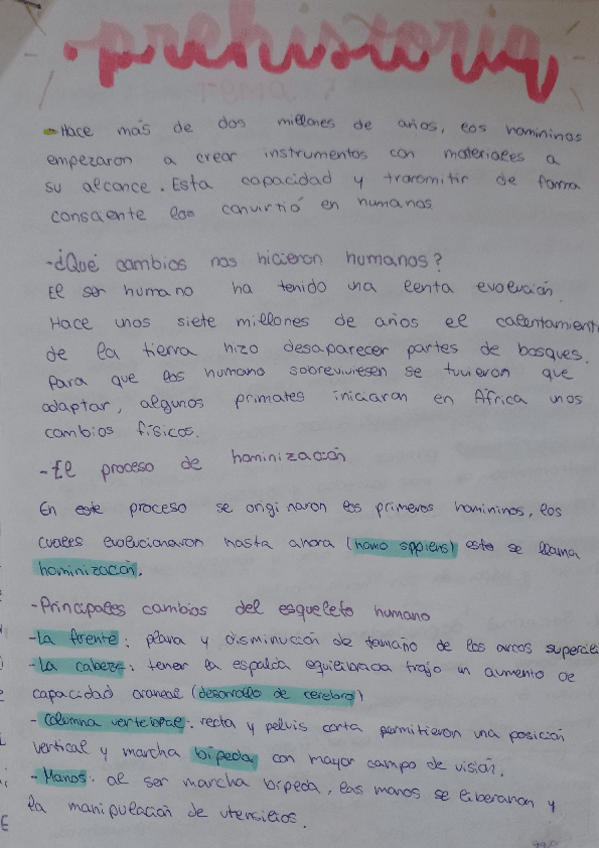 Hace más de dos millones de años, los homininos
empezaron a crear instrumentos con materiales a
su alcance. Esta capacidad y transmitir de forma
consciente los convirtió en humanos
-¿Qué cambios nos hicieron humanos?
El ser humano ha tenido una lenta evolución.
Hace unos siete millones de años el calentamient
de la tierra hizo desaparecer partes de bosques.
Para que los humano sobreviviesen se tuvieron que
adaptar, algunos primates iniciaron en África unos
cambios físicos.
-El proceso de hominización
En este proceso se originaron los primeros homininos, los
cuales evolucionaron hasta ahora (homo sapiens) este se llama
hominización.
-Principales cambios del esqueleto humano
-La frente: plana y disminución de tamaño de los arcos superci
-La cabeza: tener la espalda equilibrada trajo un aumento de
capacidad craneal (desarrollo de cerebro)
-Columna vertebral: recta y pelvis corta permitieron una posición
vertical y marcha bípeda, con mayor campo de visión.
-Manos: al ser marcha bípeda, las manos se liberaron y
la manipulación de utensilios.